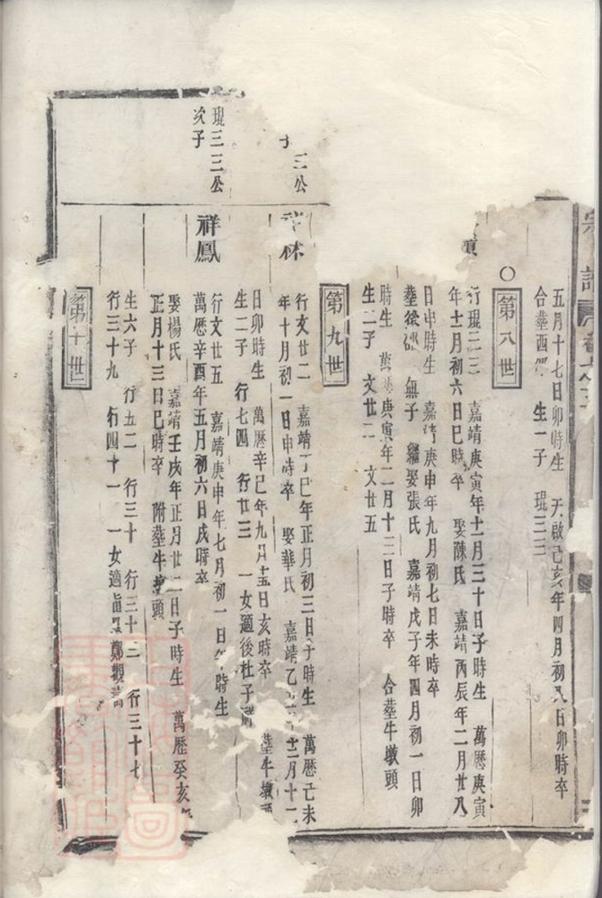 五月十七日卯時生 天啟己亥年四月初八日卯時卒
合葬西 生一子 琨三三
第八世
行琨三三 嘉靖庚寅年十一月三十日子時生 萬曆庚寅
年十一月初六日巳時卒 娶陳氏 嘉靖丙辰年二月廿八
日申時生 嘉靖庚申年九月初七日未時卒
葬後 無子 繼娶張氏 嘉靖戊子年四月初一日卯
時生 萬曆庚寅年二月十三日子時卒 合葬牛墩頭
生二子 文廿二 文廿五
第九世
三公
子
祥林
行文廿二 嘉靖丁巳年正月初三日子時生 萬曆己未
年十月初一日申時卒 娶華氏 嘉靖乙 十二月十二
日卯時生 萬曆辛巳年九月十五日亥時卒 葬牛墩頭
生二子 行七四 行廿三 一女適後杜子
琨三三公
次子
祥鳳
行文廿五 嘉靖庚申年七月初一日午時生
萬曆辛酉年五月初六日戌時卒
娶楊氏 嘉靖壬戌年正月廿二日子時生 萬曆癸亥年
正月十三日巳時卒 附葬牛墩頭
生六子 行五二 行三十 行三十二 行三十七
行三十九 行四十一 一女適 鄭觀
第十世
宗譜